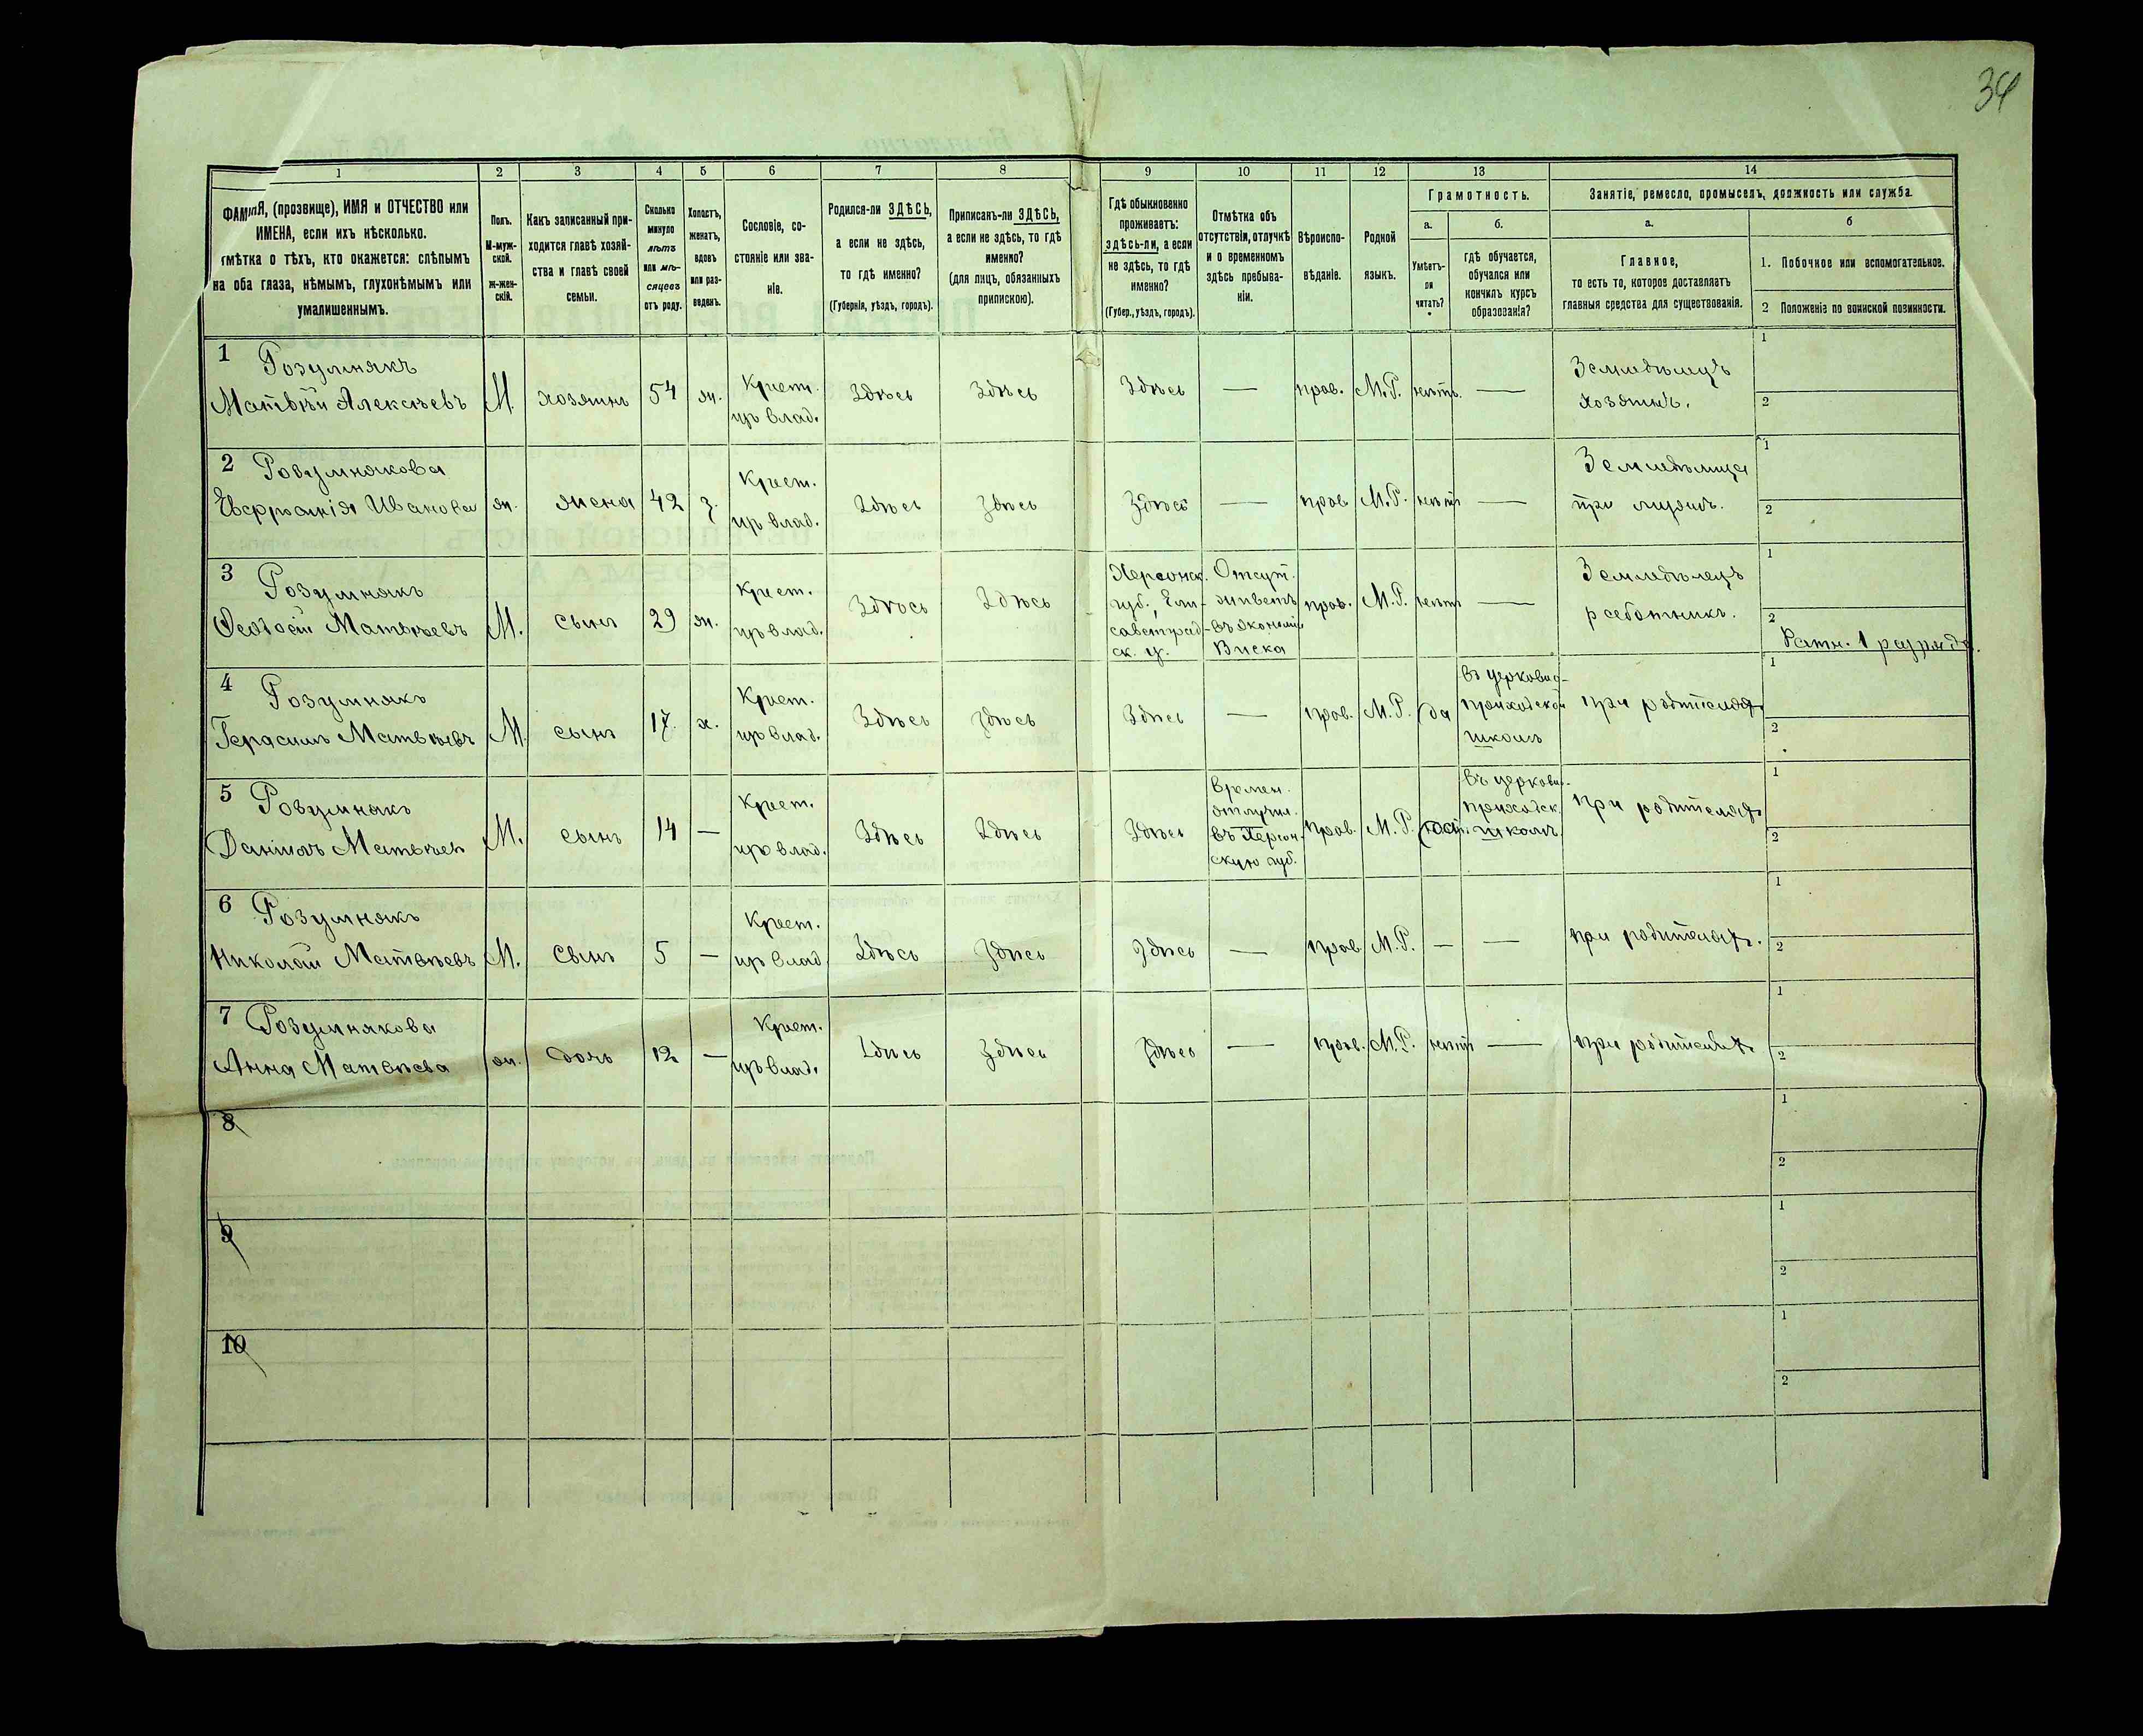 34
1
2
3
4
5
6
7
8
9
10
11
12
13
14
ФАМИЛІЯ, (прозвище), ИМЯ и ОТЧЕСТВО или
ИМЕНА, если ихъ нѣсколько.
мѣтка о тѣхъ, кто окажется: слѣпымъ
на оба глаза, нѣмымъ, глухонѣмымъ или
умалишеннымъ.
Полъ.
М-муж-
ской.
Ж-жен-
скій.
Какъ записанный при-
ходится главѣ хозяй-
ства и главѣ своей
семьи.
Сколько
минуло
лѣтъ
или мѣ-
сяцевъ
отъ роду.
Холостъ,
женатъ,
вдовъ
или раз-
веденъ.
Сословіе, со-
стояніе или зва-
ніе.
Родился-ли ЗДѢСЬ,
а если не здѣсь,
то гдѣ именно?
(Губернія, уѣздъ, городъ).
Приписанъ-ли ЗДѢСЬ,
а если не здѣсь, то гдѣ
именно?
(для лицъ, обязанныхъ
припискою).
Гдѣ обыкновенно
проживаетъ:
здѣсь-ли, а если
не здѣсь, то гдѣ
именно?
(Губер., уѣздъ, городъ).
Отмѣтка объ
отсутствіи, отлучкѣ
и о временномъ
здѣсь пребыва-
ніи.
Вѣроиспо-
вѣданіе.
Родной
языкъ.
Грамотность.
а.
Умѣетъ-
ли
читать?
б.
гдѣ обучается,
обучался или
кончилъ курсъ
образованія?
Занятіе, ремесло, промыселъ, должность или служба.
а.
Главное,
то есть то, которое доставляетъ
главныя средства для существованія.
б
1. Побочное или вспомогательное.
2 Положеніе по воинской повинности.
1 Розумнякъ
Матвѣй Алексѣевъ М. хозяинъ 54 ж. Крест. изъ влад. Здѣсь Здѣсь Здѣсь — прав. М.Р. нѣтъ. — Земледѣлецъ хозяинъ.
1
2
2 Розумнякова
Евфросинія Иванова ж. жена 42 з. Крест. изъ влад. Здѣсь Здѣсь Здѣсь — прав. М.Р. нѣтъ — Земледѣлица при мужѣ.
1
2
3 Розумнякъ
Феодосій Матвѣевъ М. сынъ 29 ж. Крест. изъ влад. Здѣсь Здѣсь Херсонск. губ., Ели- саветград- ск. у. Отсут. живетъ въ экономіи Виска прав. М.Р. нѣтъ — Земледѣлецъ работникъ.
1
2 Ратн. 1 разряда.
4 Розумнякъ
Герасимъ Матвѣевъ М. сынъ 17. х. Крест. изъ влад. Здѣсь Здѣсь Здѣсь — прав. М.Р. да въ церковно- приходской школѣ при родителяхъ
1
2
5 Розумнякъ
Даніилъ Матвѣев М. сынъ 14 — Крест. изъ влад. Здѣсь Здѣсь Здѣсь Времен. отлучил. въ Херсон- скую губ. прав. М.Р. въ церковно- приходск. школѣ при родителяхъ
1
2
6 Розумнякъ
Николай Матвѣевъ М. сынъ 5 — Крест. изъ влад Здѣсь Здѣсь Здѣсь — прав М.Р. — — при родителяхъ.
1
2
7 Розумнякова
Анна Матвѣева ж. дочь 12 — Крест. изъ влад. Здѣсь Здѣсь Здѣсь — прав. М.Р. нѣтъ — при родителяхъ
1
2
8
1
2
9
1
2
10
1
2